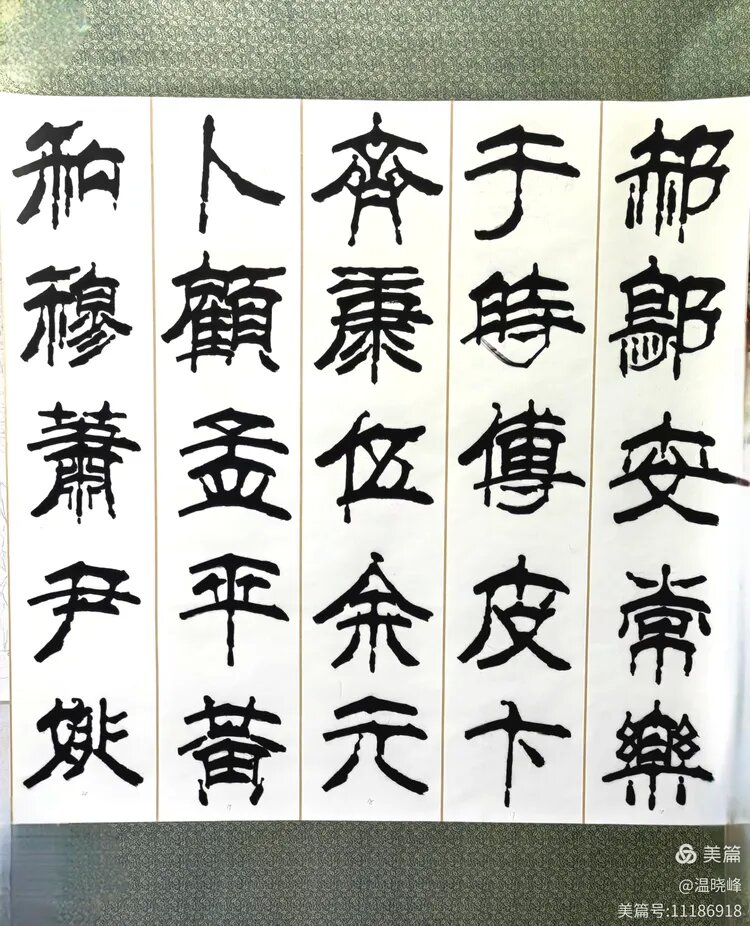 郝鄔安常樂
于時傅皮卞
齊康伍余元
卜顧孟平黃
和穆蕭尹姚
美篇
@温晓峰
美篇号:11186918